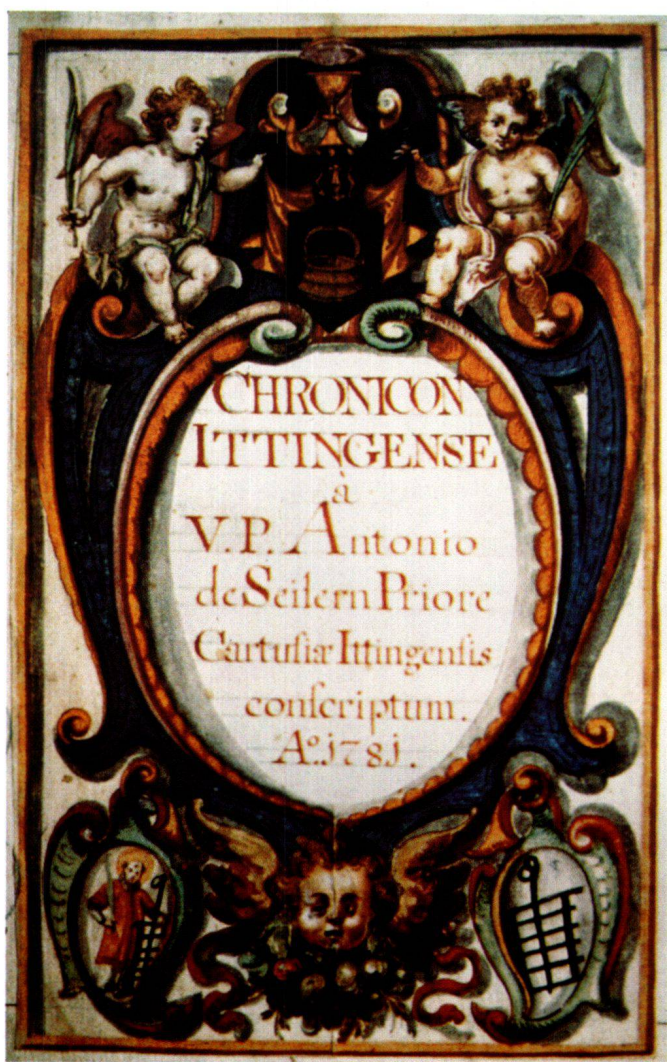 CHRONICON
ITTINGENSE
à
V.P. Antonio
de Seilern Priore
Cartusiæ Ittingensis
conscriptum.
Aº. 1781.